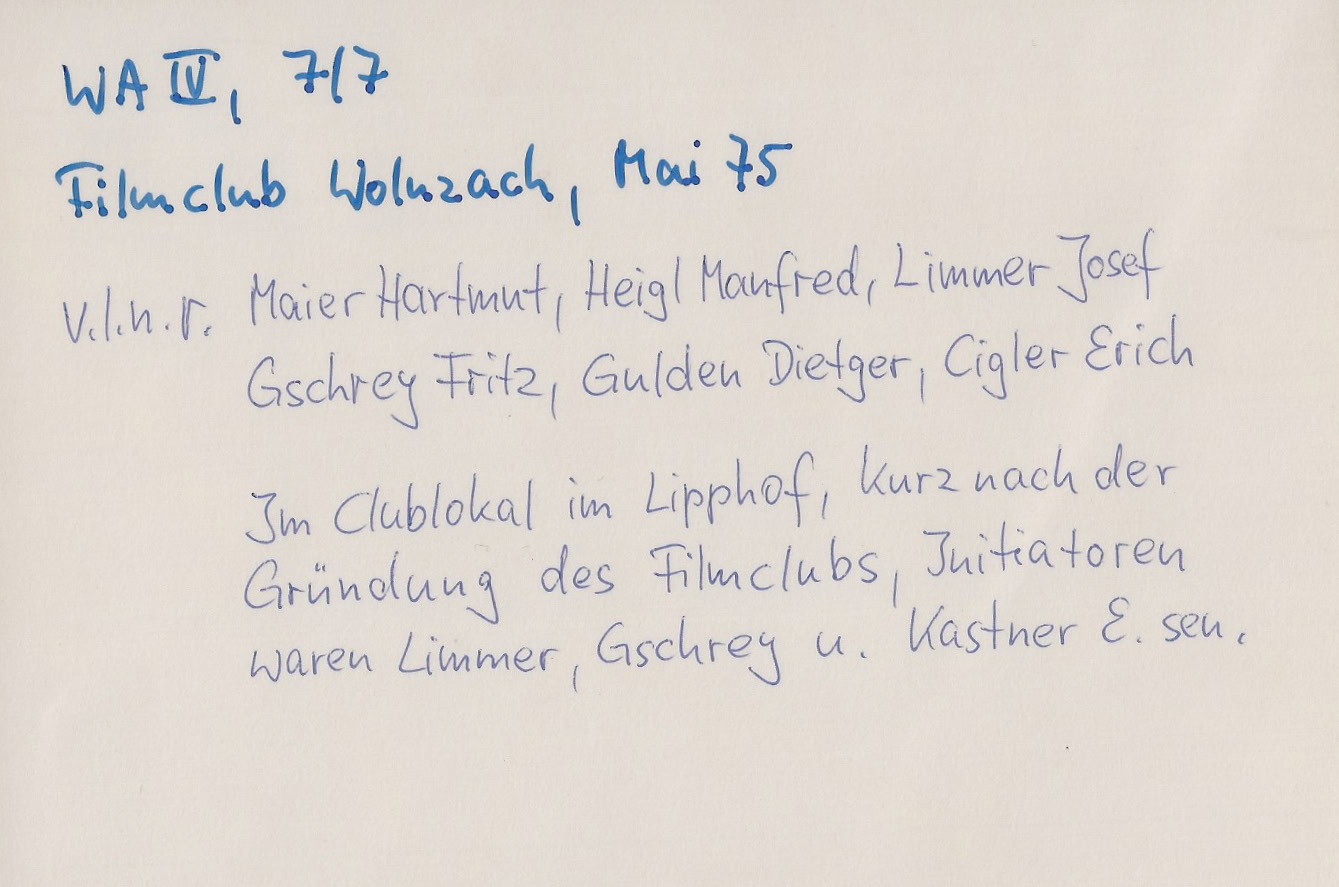 WA IV, 7/7
Filmclub Wolnzach, Mai 75
v.l.n.r. Maier Hartmut, Heigl Manfred, Limmer Josef
Gschrey Fritz, Gulden Dietger, Cigler Erich
Im Clublokal im Lipphof, kurz nach der
Gründung des Filmclubs, Initiatoren
waren Limmer, Gschrey u. Kastner E. sen.